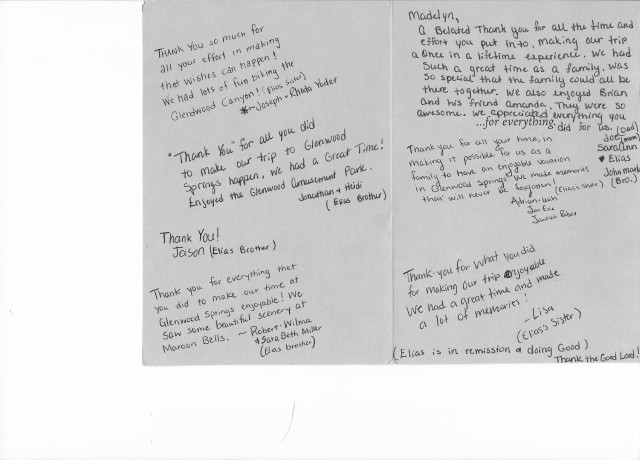 Thank You so much for
all your effort in making
that wishes can happen!
We had lots of fun biking the
Glendwood Canyon! (Elias Sister)
~ Joseph + Rhoda Yoder
"Thank You" for all you did
to make our trip to Glenwood
Springs happen, we had a Great Time!
Enjoyed the Glenwood Amusement Park.
Jonathan + Heidi
(Elias Brother)
Thank You!
Jason (Elias Brother)
Thank you for everything that
you did to make our time at
Glenwood Springs enjoyable! We
saw some beautiful scenery at
Maroon Bells. ~ Robert, Wilma
+ Sara Beth Miller
(Elias brother)
Madelyn,
A Belated Thank you for all the time and
effort you put into, making our trip
a Once in a lifetime experience. We had
Such a great time as a family. Was
so special that the family could all be
there together. We also enjoyed Brian
and his friend Amanda. They were so
awesome. We appreciated everything you
...for everything. did for us. (Dad)
Joe (mom)
SaraAnn
♥ Elias
John mark
(Bro.)
Thank you for all your time, in
making it possible for us as a
family to have an enjoyable vacation
in Glenwood Springs. We made memories
that will never be forgotten! (Elias's sister)
Adrian + Leah
Jan Eric
Thank-you for what you did
for making our trip enjoyable
We had a great time and made
a lot of memories!
~ Lisa
(Elias's Sister)
(Elias is in remission & doing Good)
Thank the Good Lord!